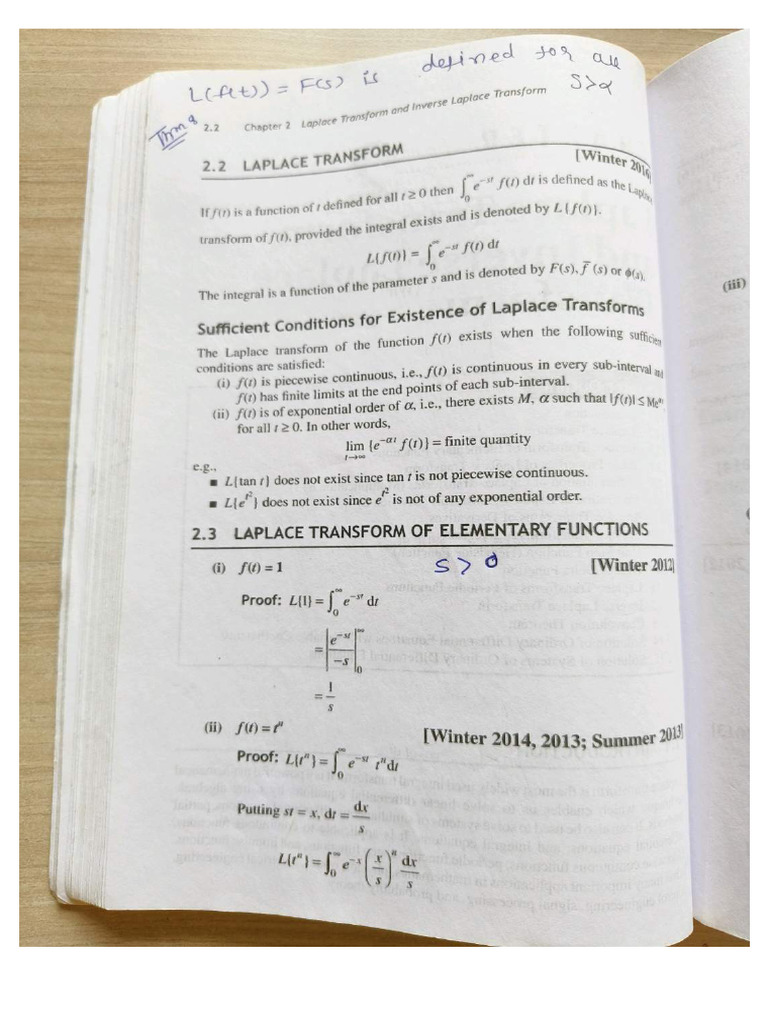 L(f(t)) = F(s) is defined for all
s>α
Thm:
2.2 Chapter 2 Laplace Transform and Inverse Laplace Transform
2.2 LAPLACE TRANSFORM
[Winter 2016]
If f(t) is a function of t defined for all t ≥ 0 then ∫₀^∞ e^{−st} f(t) dt is defined as the Laplace
transform of f(t), provided the integral exists and is denoted by L{f(t)}.
L{f(t)} = ∫₀^∞ e^{−st} f(t) dt
The integral is a function of the parameter s and is denoted by F(s), f̄(s) or ϕ(s).
(iii)
Sufficient Conditions for Existence of Laplace Transforms
The Laplace transform of the function f(t) exists when the following sufficient
conditions are satisfied:
(i) f(t) is piecewise continuous, i.e., f(t) is continuous in every sub-interval and
f(t) has finite limits at the end points of each sub-interval.
(ii) f(t) is of exponential order of α, i.e., there exists M, α such that |f(t)| ≤ Me^{αt},
for all t ≥ 0. In other words,
lim_{t→∞} {e^{−αt} f(t)} = finite quantity
e.g.,
■ L{tan t} does not exist since tan t is not piecewise continuous.
■ L{e^{t²}} does not exist since e^{t²} is not of any exponential order.
2.3 LAPLACE TRANSFORM OF ELEMENTARY FUNCTIONS
(i) f(t) = 1 s > 0 [Winter 2012]
Proof: L{1} = ∫₀^∞ e^{−st} dt
= |e^{−st}/−s|₀^∞
= 1/s
(ii) f(t) = tⁿ
[Winter 2014, 2013; Summer 2013]
Proof: L{tⁿ} = ∫₀^∞ e^{−st} tⁿ dt
Putting st = x, dt = dx/s
L{tⁿ} = ∫₀^∞ e^{−x} (x/s)ⁿ dx/s